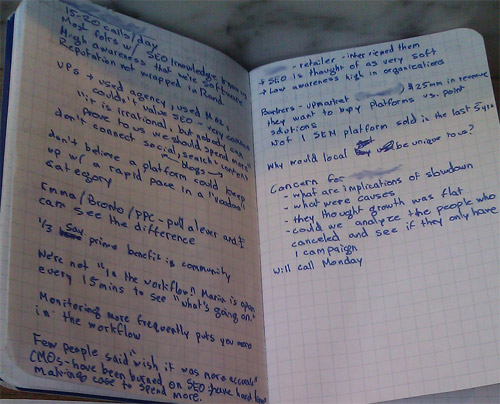 15-20 calls/day
Most folks w/ SEO knowledge
High awareness that we're software
Reputation not wrapped in Rand
VPs + used agency, used Moz,
couldn't value SEO - very content
"it is irrational, but nobody can
prove to us we should spend more"
don't connect social, search, content
blogs
don't believe a platform could keep
up w/ a rapid pace in a "voodoo"
category
Emma/Bronto/PPC - pull a lever and
can see the difference
1/3 say prime benefit is community
We're not "in the workflow!! Marin is open
every 15 mins to see "what's going on."
Monitoring more frequently puts you more
in the workflow
Few people said "wish it was more accurate"
CMOs - have been burned on SEO - have hard time
making case to spend more.
- retailer - interviewed them
+ SEO is thought of as very soft
+ Low awareness high in organizations
Partners - upmarket $25mm in revenue
they want to buy platforms vs. point
solutions
Not 1 SEM platform sold in the last 5 yrs
Why would local be unique to us?
Concern for
- what are implications of slowdown
- what were causes
- they thought growth was flat
- could we analyze the people who
canceled and see if they only have
1 campaign
Will call Monday